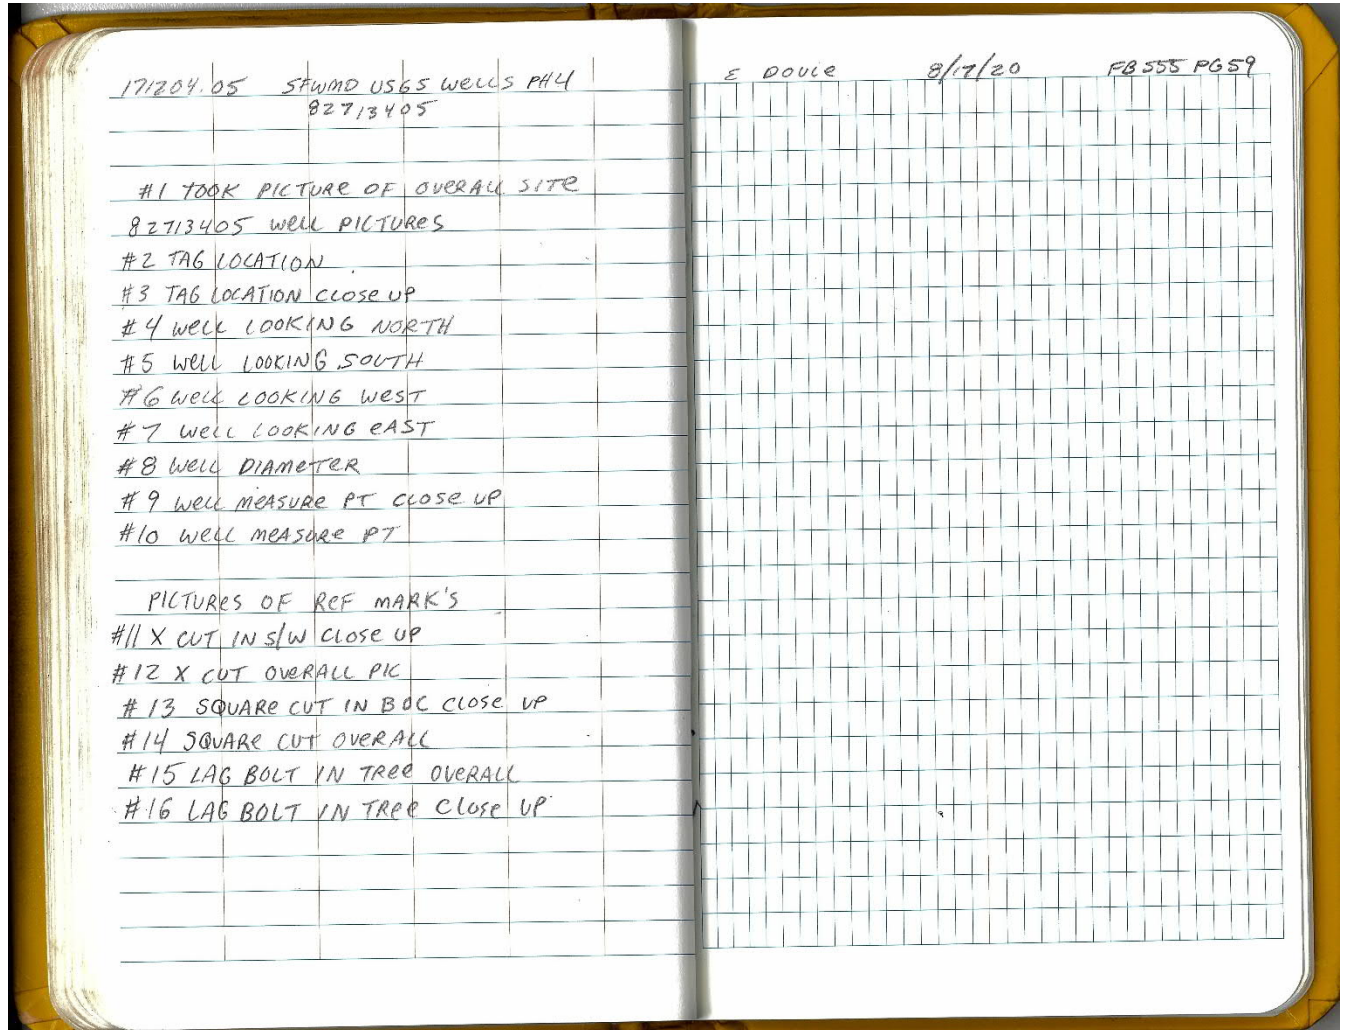 171204.05 SFWMD USGS WELLS PH4
82713405
#1 TOOK PICTURE OF OVERALL SITE
82713405 WELL PICTURES
#2 TAG LOCATION
#3 TAG LOCATION CLOSE UP
#4 WELL LOOKING NORTH
#5 WELL LOOKING SOUTH
#6 WELL LOOKING WEST
#7 WELL LOOKING EAST
#8 WELL DIAMETER
#9 WELL MEASURE PT CLOSE UP
#10 WELL MEASURE PT
PICTURES OF REF MARK'S
#11 X CUT IN S/W CLOSE UP
#12 X CUT OVERALL PIC
#13 SQUARE CUT IN BOC CLOSE UP
#14 SQUARE CUT OVERALL
#15 LAG BOLT IN TREE OVERALL
#16 LAG BOLT IN TREE CLOSE UP
E 8/17/20 FB555 PG59